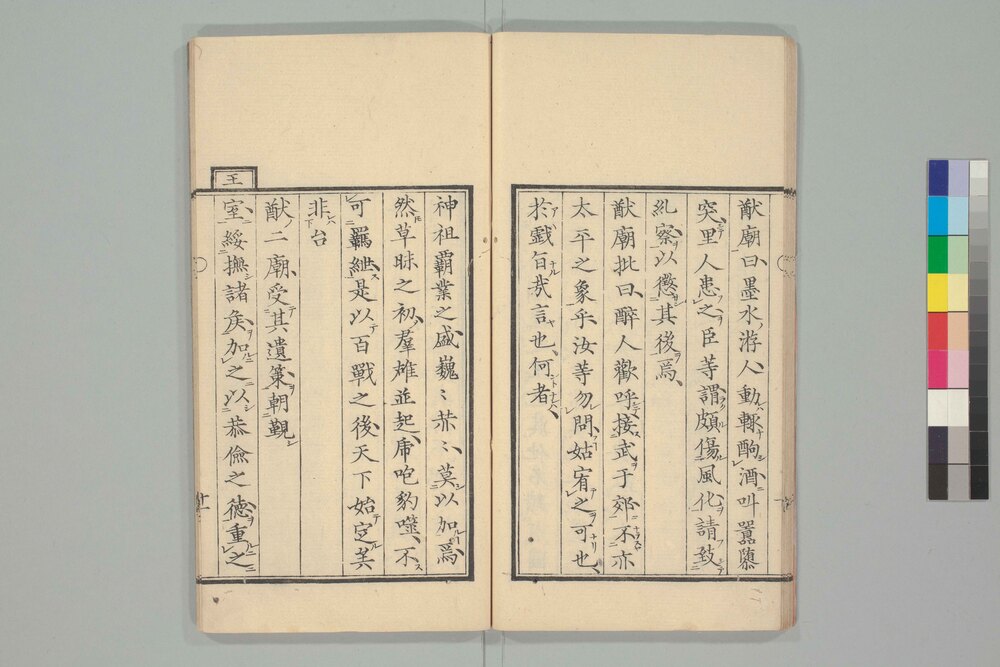 猷廟曰墨水游人動輙酗酒叫囂隳
突里人患之臣等謂頗傷風化請致
糺察以懲其後焉
猷廟批曰醉人歡呼接武于郊不亦
太平之象乎汝等勿問姑宥之可也
於戯旨哉言也何者
神祖覇業之盛巍〻赤〻莫以加焉
然草昧之初羣雄並起虎咆豹噬不
可羈紲是以百戰之後天下始定矣
非台
猷二廟受其遺策朝覲
王
室綏撫諸矦加之以恭儉之德重之
十一